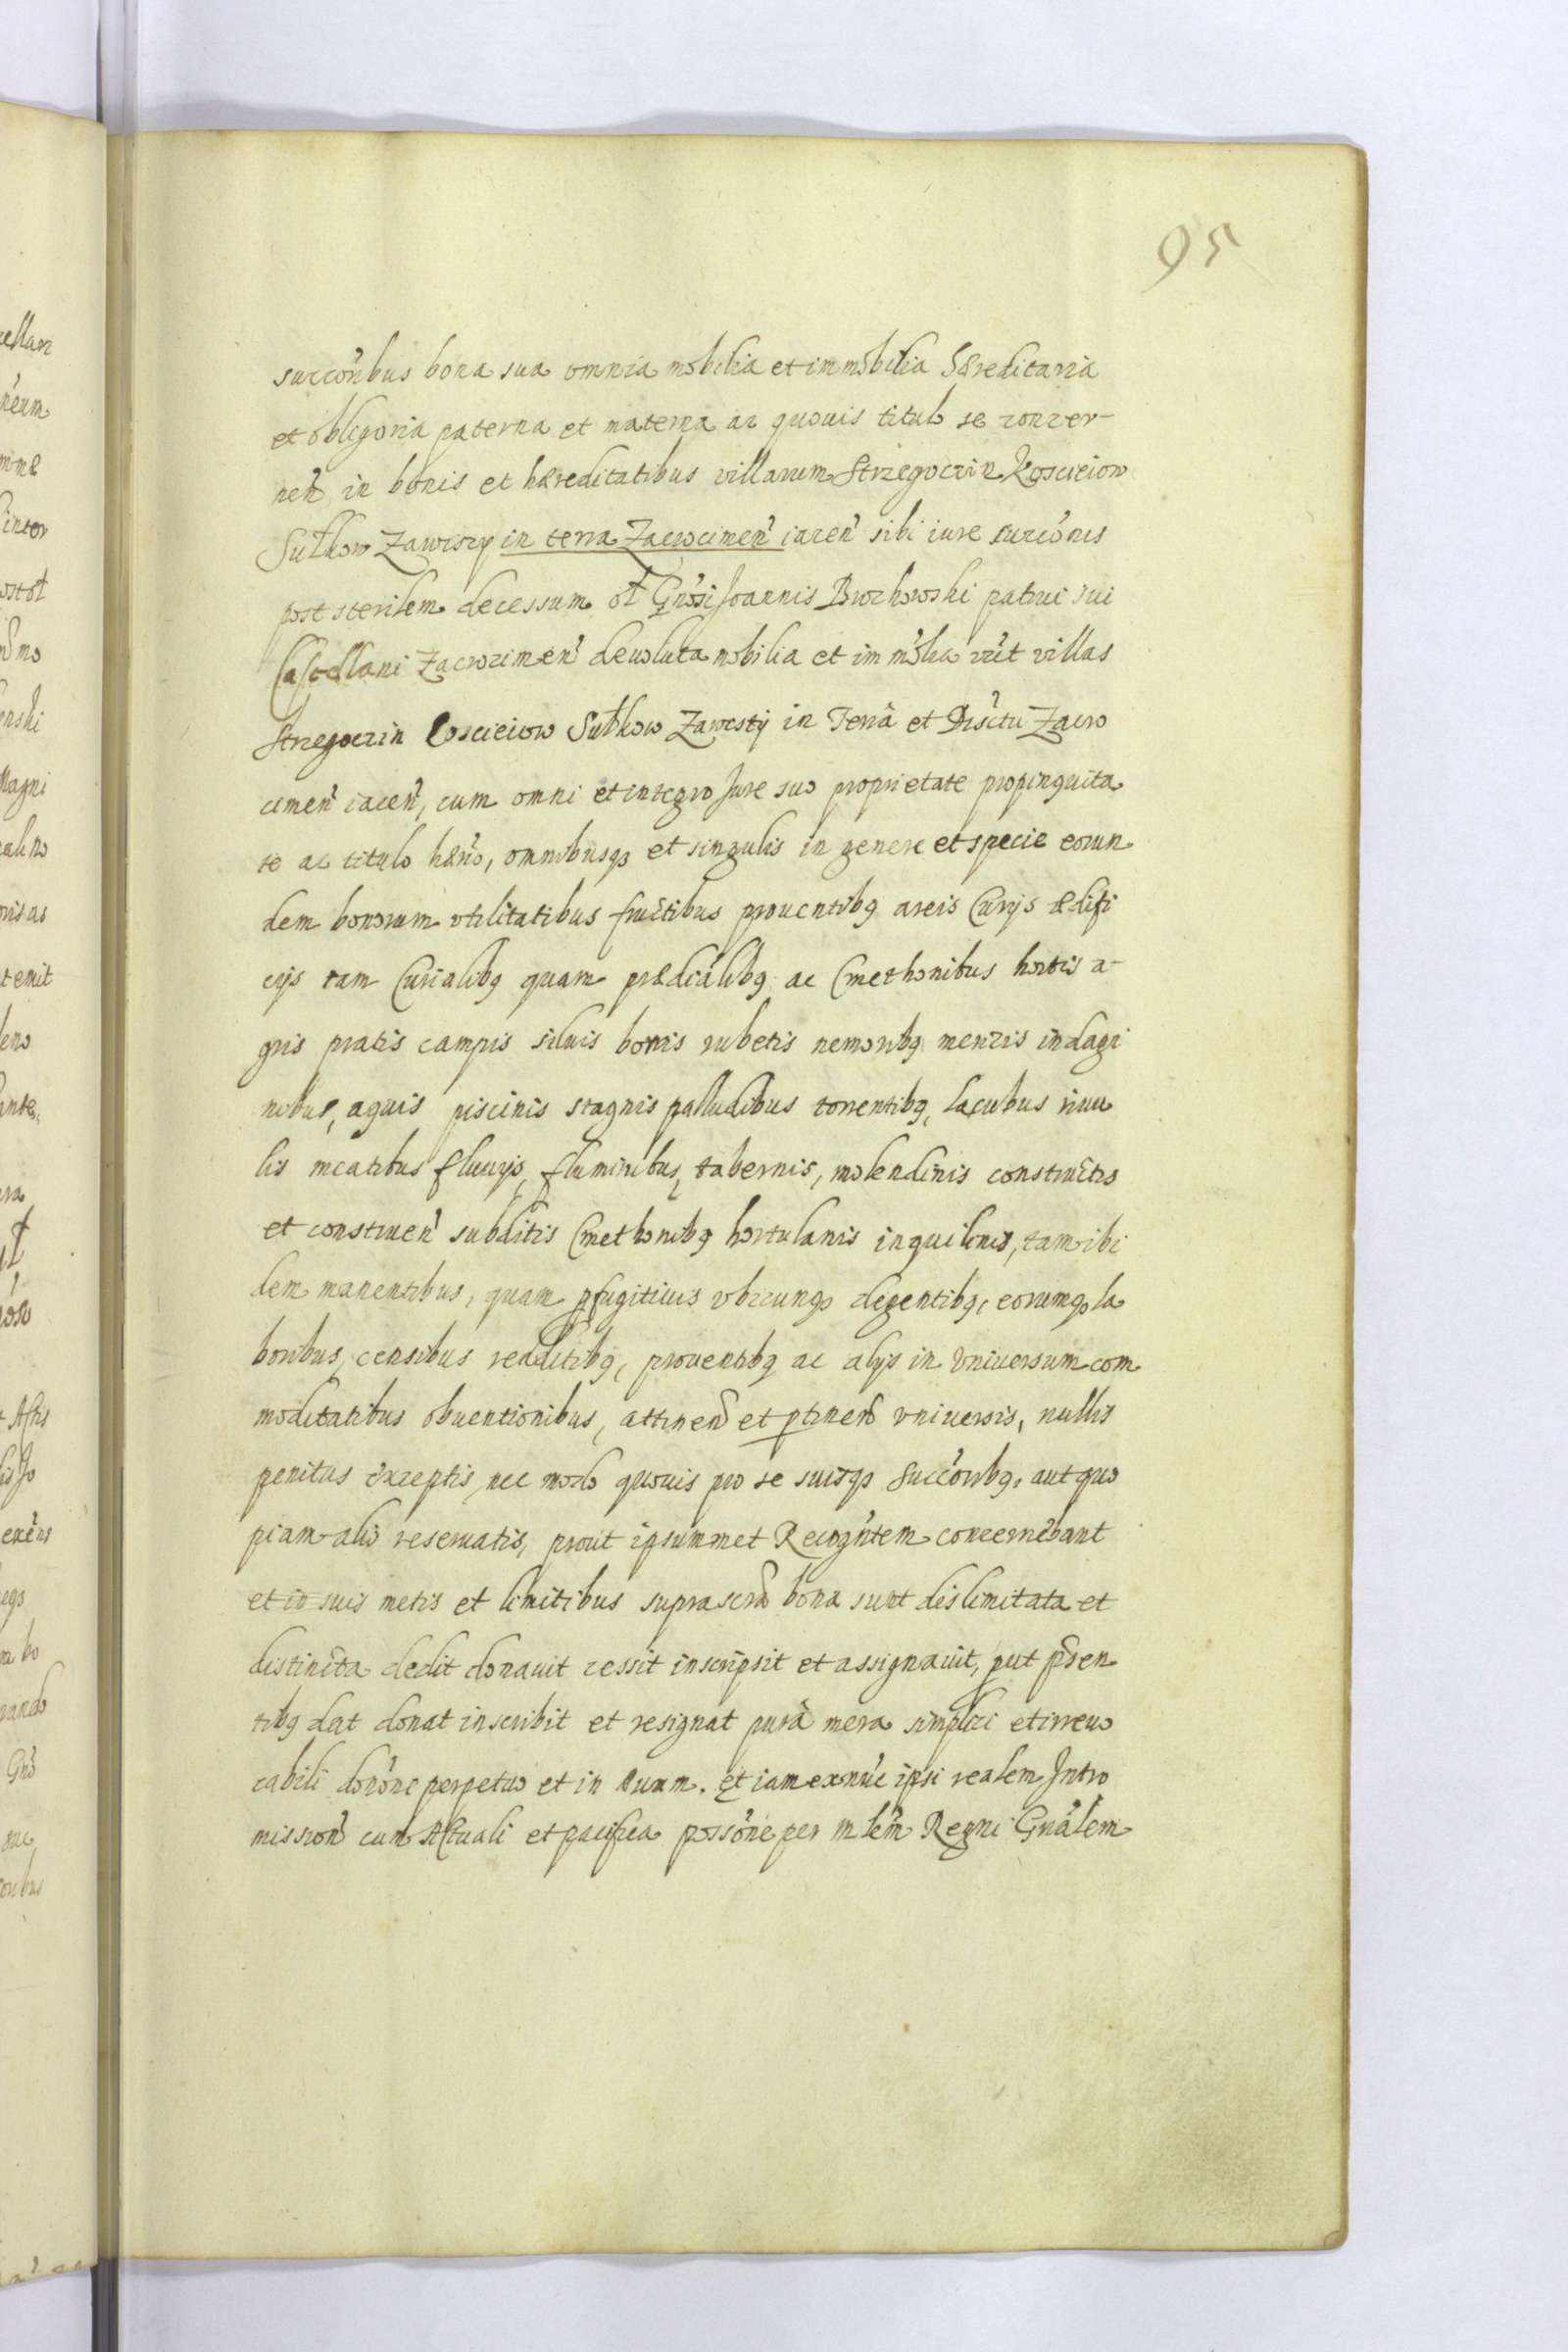 95
succoribus bona sua omnia mobilia et immobilia hæreditaria
et obligoria paterna et materna ac quouis titulo se concer-
nen in bonis et hæreditatibus villarum Strzegoczin Kosciciow
Sulkow Zawiszy in terra Zacrocimen iacen sibi iure succionis
post sterilem decessum ol Gnosi Joannis Brochowski patrui sui
Castellani Zacrocimen deuoluta mobilia et immobilia vzt villas
Strzegoczin Coscieiow Sulkow Zawisty in Terra et Disctu Zacro
cimen iacen, cum omni et integro Jure suo proprietate propinquita
te ac titulo hærio, omnibusq et singulis in genere et specie eorun
dem bonorum vtilitatibus fructibus prouentibq areis Curijs ædifi
cijs tam Curialibq quam prædialibq ac Cmethonibus hortis a-
gris pratis campis siluis borris rubetis nemoribq mericis indagi
nibus, aquis piscinis stagnis palludibus torrentibq, lacubus riuu
lis meatibus fluuijs, fluminibus, tabernis, molendinis constructis
et construen subditis Cmethonibq hortulanis inquilinis, tam ibi
dem manentibus, quam pfugitiuis vbicunq degentibq, eorumq la
boribus, censibus redditibq, prouentibq ac alijs in vniuersum com
moditatibus obuentionibus, attinen et ptinen vniuersis, nullis
penitus exceptis, nec modo quouis pro se suisq succoribq, aut quo
piam alio reseruatis, prout ipsummet Recognitem concernebant
et in suis metis et limitibus suprascra bona sunt dislimitata et
distincta dedit donauit cessit inscripsit et assignauit, put psen
tibq dat donat inscribit et resignat pura mera simplici et irreuo
cabili donone perpetuo et in æuum. et iam ex nuc ipsi realem Intro
mission cum Actuali et pacifica possone per mlem Regni Gnalem